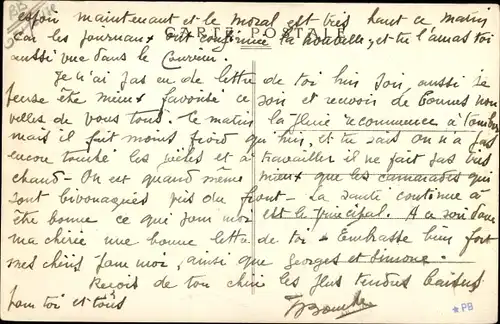 espoir maintenant et le moral est très haut ce matin
CARTE POSTALE
car les journaux ont confirmé la nouvelle, et tu l'auras toi
aussi vue dans le Courrier.
Je n'ai pas eu de lettre de toi hier soir aussi je
pense être mieux favorisé ce soir et recevoir de bonnes nou
velles de vous tous. Ce matin la pluie a commencé à tomber
mais il fait moins froid qu'hier, et tu sais on n'a pas
encore touché les et à travailler il ne fait pas très
chaud - On est quand même mieux que les camarades qui
sont bivouaqués près du front - La santé continue à
être bonne ce qui pour moi est le principal. A ce soir donc
ma chérie une bonne lettre de toi - Embrasse bien fort
mes chéris pour moi, ainsi que Georges et Simone.
Reçois de ton chéri les plus tendres baisers
pour toi et tous
*PB